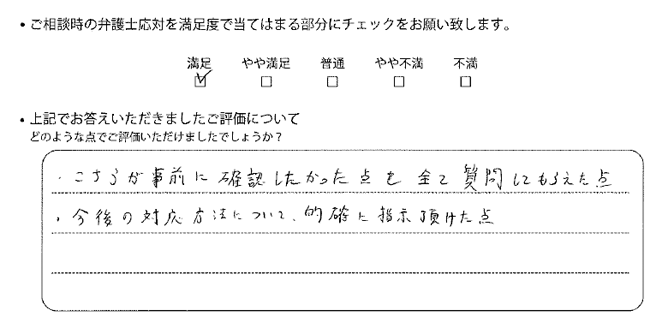 • ご相談時の弁護士応対を満足度で当てはまる部分にチェックをお願い致します。
満足 やや満足 普通 やや不満 不満
☑ □ □ □ □
• 上記でお答えいただきましたご評価について
どのような点でご評価いただけましたでしょうか？
・こちらが事前に確認したかった点を全て質問してもらえた点
・今後の対応方法について、的確に指示頂けた点